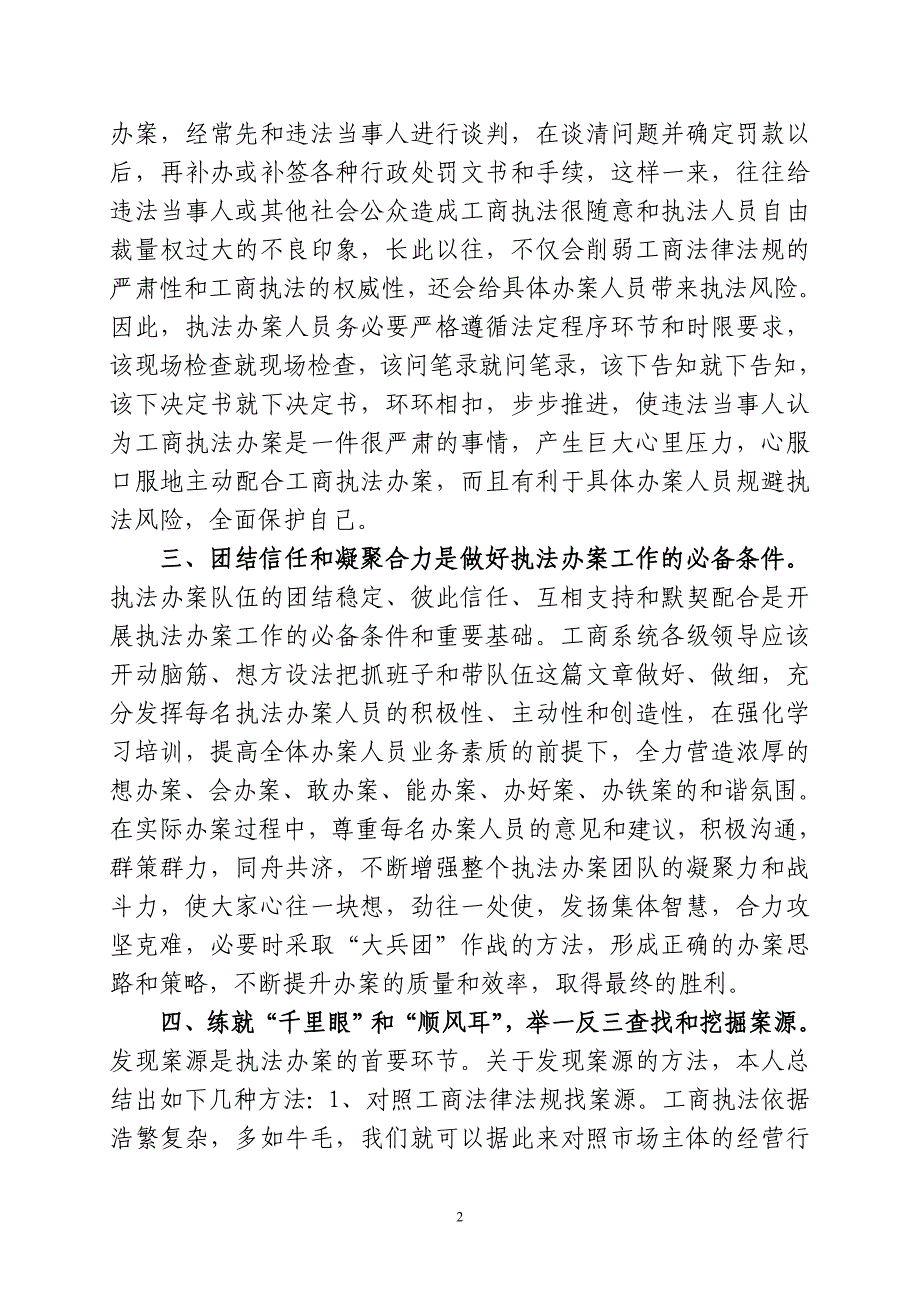 办案，经常先和违法当事人进行谈判，在谈清问题并确定罚款以
后，再补办或补签各种行政处罚文书和手续，这样一来，往往给
违法当事人或其他社会公众造成工商执法很随意和执法人员自由
裁量权过大的不良印象，长此以往，不仅会削弱工商法律法规的
严肃性和工商执法的权威性，还会给具体办案人员带来执法风险。
因此，执法办案人员务必要严格遵循法定程序环节和时限要求，
该现场检查就现场检查，该问笔录就问笔录，该下告知就下告知，
该下决定书就下决定书，环环相扣，步步推进，使违法当事人认
为工商执法办案是一件很严肃的事情，产生巨大心里压力，心服
口服地主动配合工商执法办案，而且有利于具体办案人员规避执
法风险，全面保护自己。
三、团结信任和凝聚合力是做好执法办案工作的必备条件。
执法办案队伍的团结稳定、彼此信任、互相支持和默契配合是开
展执法办案工作的必备条件和重要基础。工商系统各级领导应该
开动脑筋、想方设法把抓班子和带队伍这篇文章做好、做细，充
分发挥每名执法办案人员的积极性、主动性和创造性，在强化学
习培训，提高全体办案人员业务素质的前提下，全力营造浓厚的
想办案、会办案、敢办案、能办案、办好案、办铁案的和谐氛围。
在实际办案过程中，尊重每名办案人员的意见和建议，积极沟通，
群策群力，同舟共济，不断增强整个执法办案团队的凝聚力和战
斗力，使大家心往一块想，劲往一处使，发扬集体智慧，合力攻
坚克难，必要时采取“大兵团”作战的方法，形成正确的办案思
路和策略，不断提升办案的质量和效率，取得最终的胜利。
四、练就“千里眼”和“顺风耳”，举一反三查找和挖掘案源。
发现案源是执法办案的首要环节。关于发现案源的方法，本人总
结出如下几种方法：1、对照工商法律法规找案源。工商执法依据
浩繁复杂，多如牛毛，我们就可以据此来对照市场主体的经营行
2